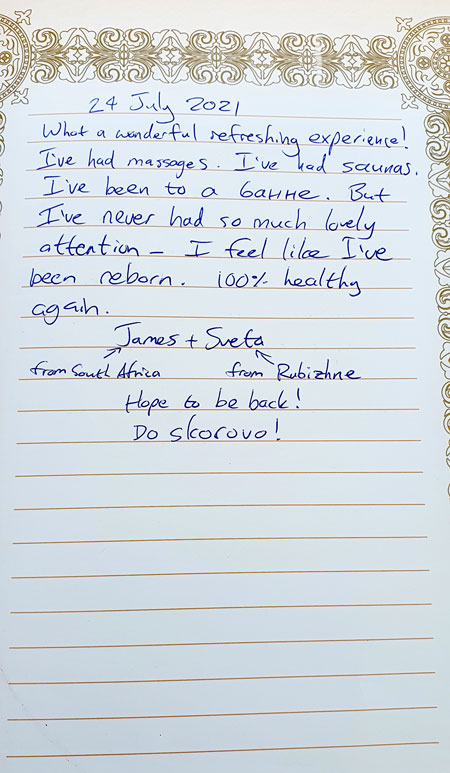 24 July 2021
What a wonderful refreshing experience!
I've had massages. I've had saunas.
I've been to a банне. But
I've never had so much lovely
attention – I feel like I've
been reborn. 100% healthy
again.
James + Sveta
from South Africa from Rubizhne
Hope to be back!
Do skorovo!